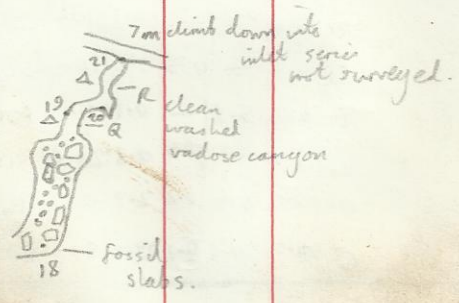 7m climb down into
inlet series
not surveyed.
21
R
19
20
clean
Q
washed
vadose canyon
fossil
18
slabs.